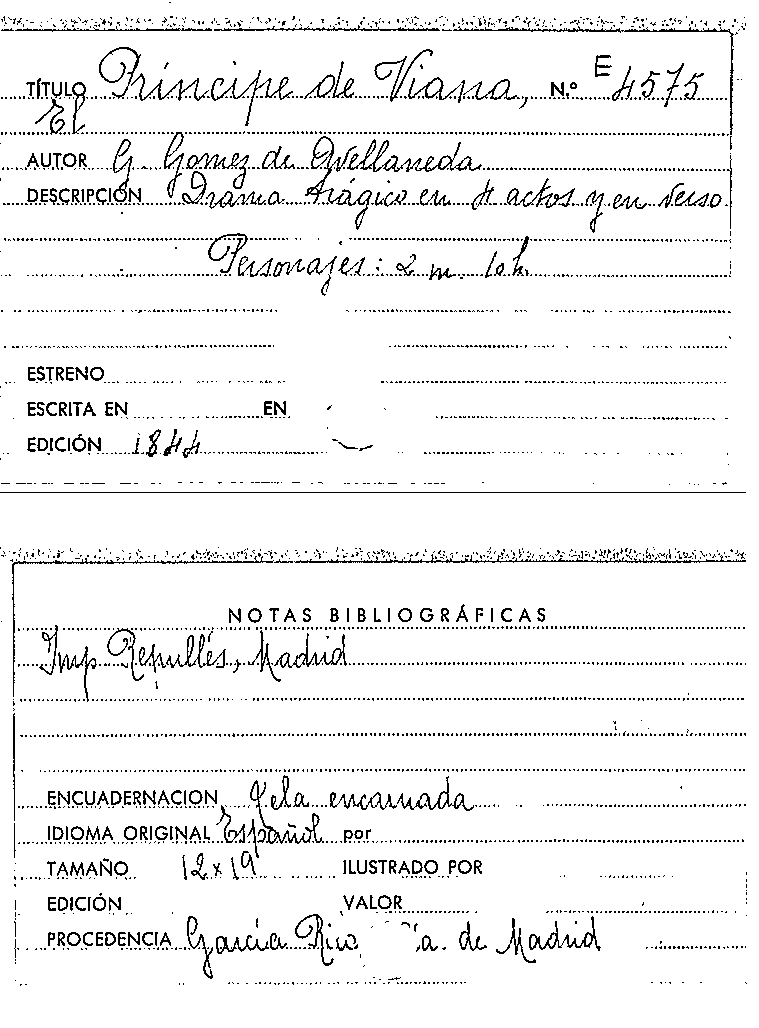 TÍTULO Príncipe de Viana, N.º E 4575
El
AUTOR G. Gomez de Avellaneda
DESCRIPCIÓN Drama trágico en 4 actos y en verso
Personajes: 2 m. 10 h.
ESTRENO
ESCRITA EN EN
EDICIÓN 1844
NOTAS BIBLIOGRÁFICAS
Imp Repullés, Madrid
ENCUADERNACION Tela encarnada
IDIOMA ORIGINAL Español por
TAMAÑO 12 x 19 ILUSTRADO POR
EDICIÓN VALOR
PROCEDENCIA García Rico de Madrid